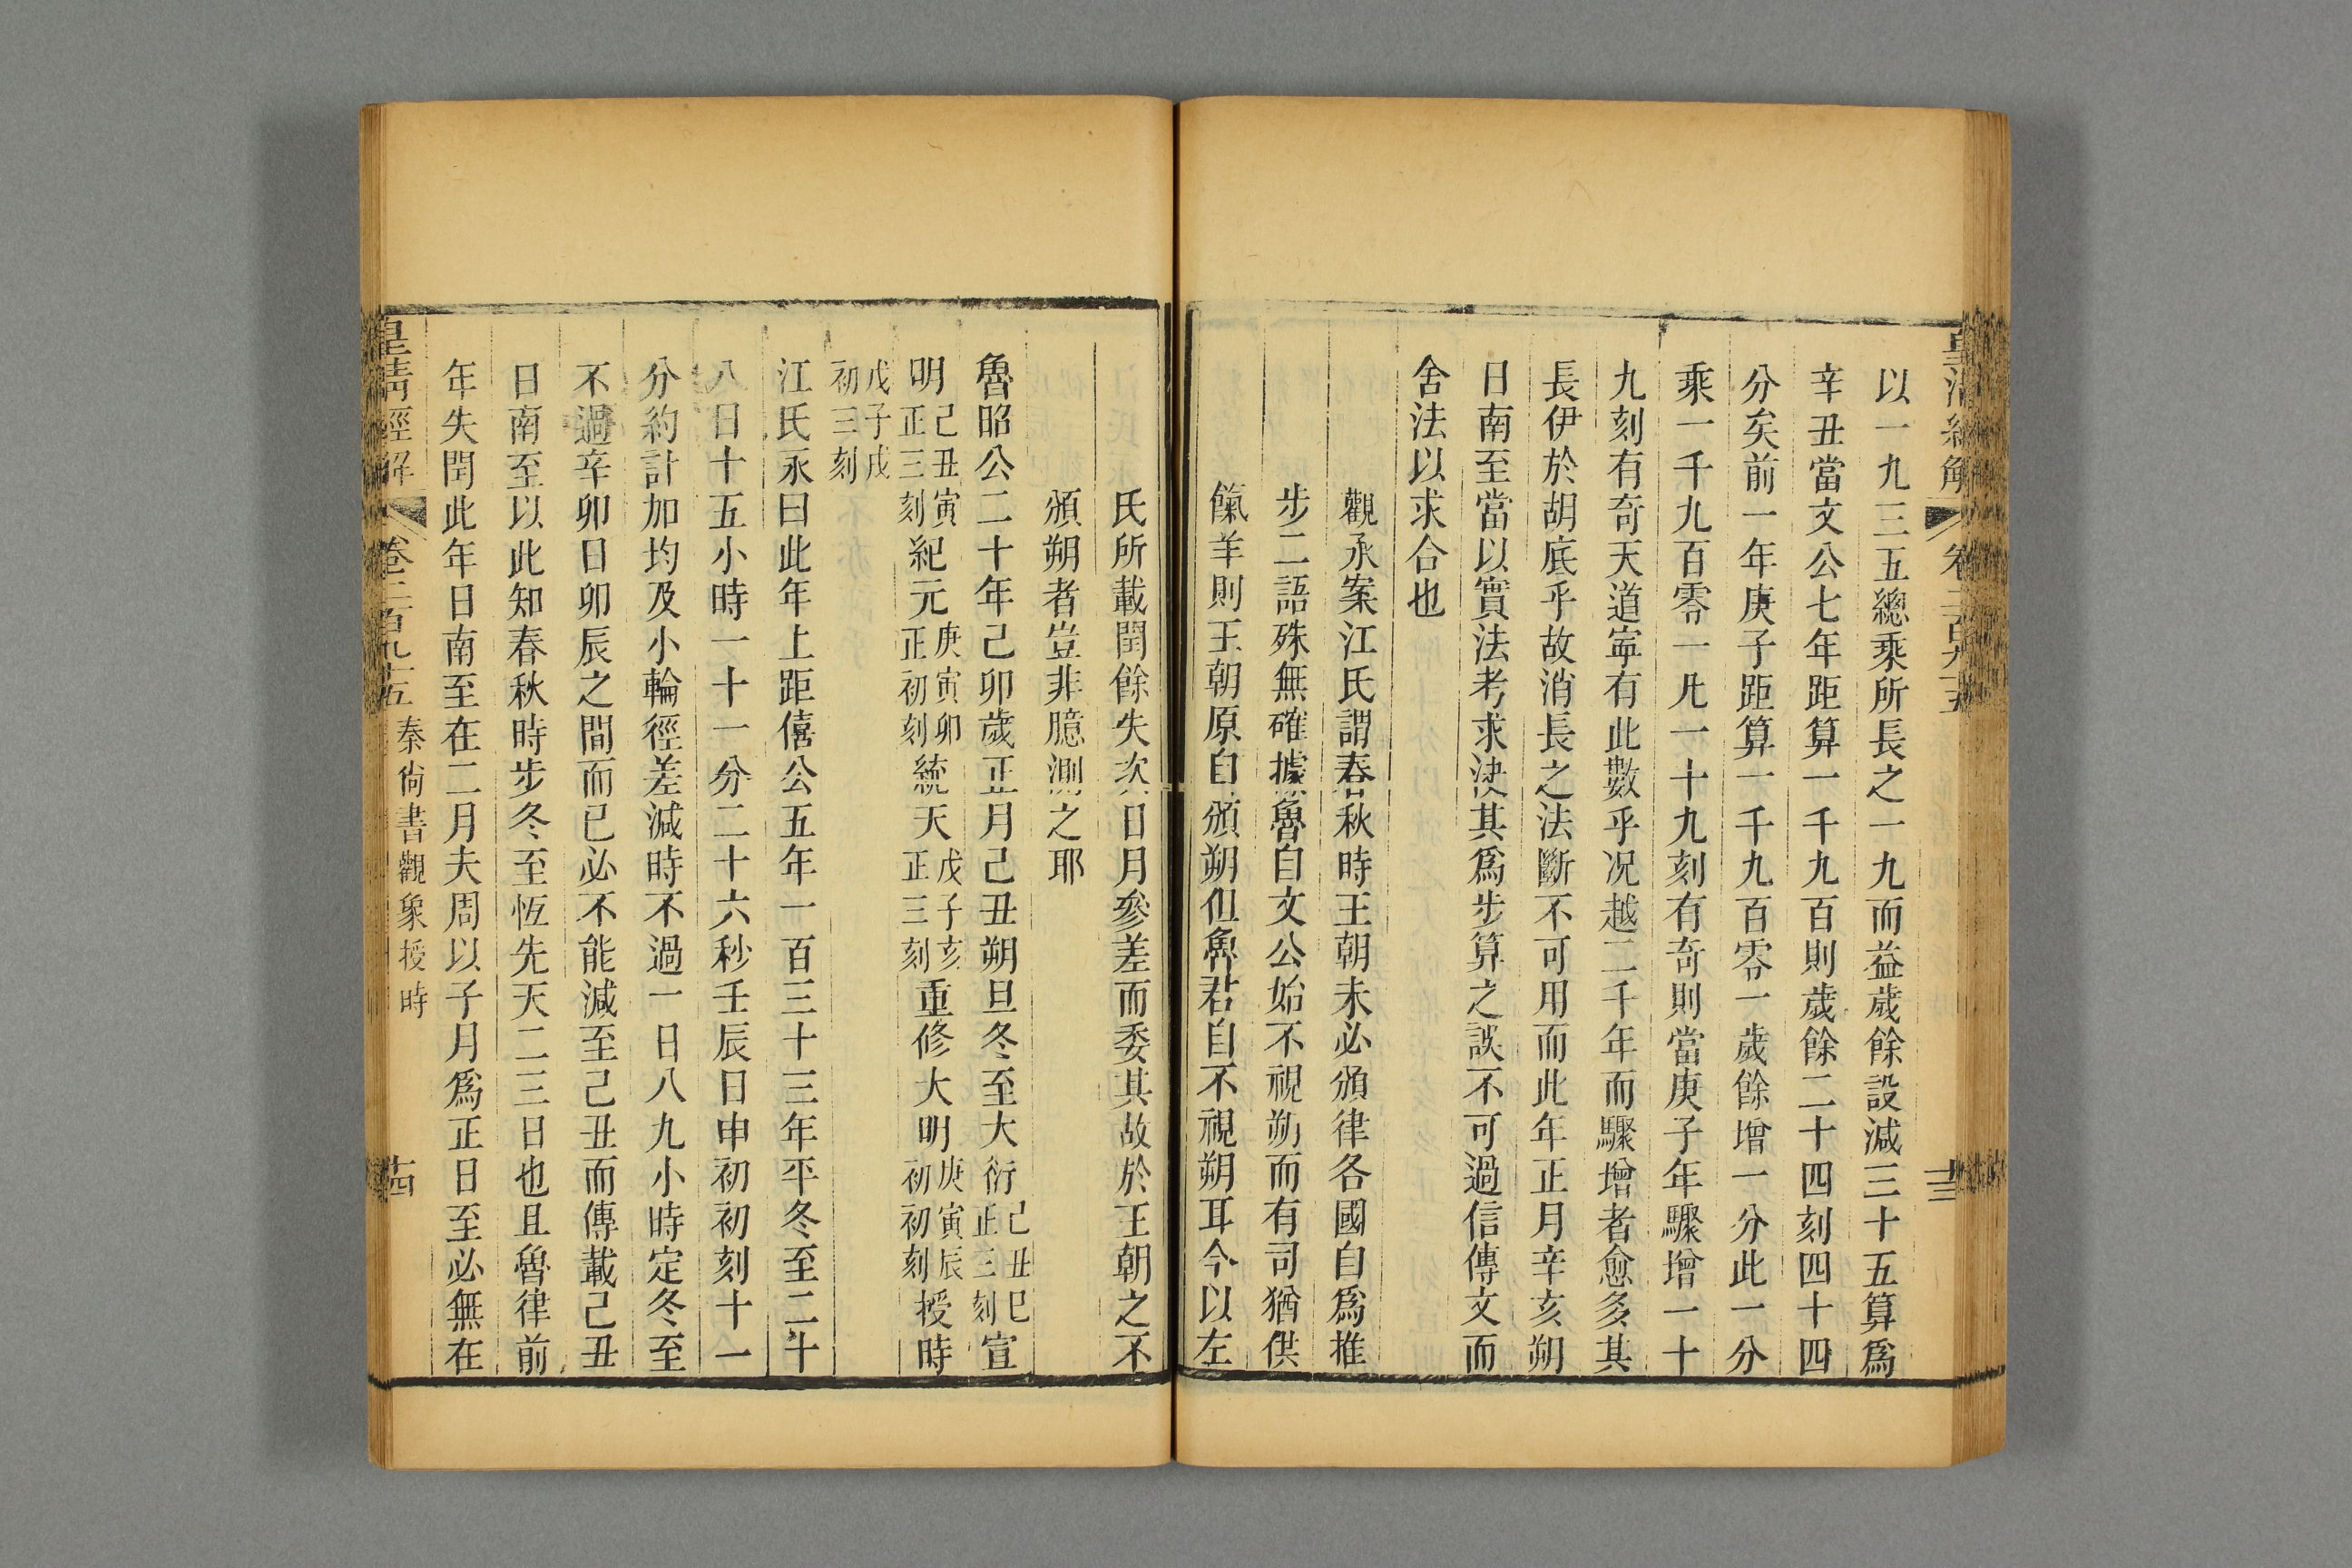 皇清經解
卷二百九十五
十三
以一九三五總乘所長之一九而益歲餘設減三十五算爲
辛丑當文公七年距算一千九百則歲餘二十四刻四十四
分矣前一年庚子距算一千九百零一歲餘增一分此一分
乘一千九百零一凡一十九刻有奇則當庚子年驟增一十
九刻有奇天道寧有此數乎况越二千年而驟增者愈多其
長伊於胡底乎故消長之法斷不可用而此年正月辛亥朔
日南至當以實法考求決其爲步算之誤不可過信傳文而
舍法以求合也
觀承案江氏謂春秋時王朝未必頒律各國自爲推
步二語殊無確據魯自文公始不視朔而有司猶供
餼羊則王朝原自頒朔但魯君自不視朔耳今以左
氏所載閏餘失次日月參差而委其故於王朝之不
頒朔者豈非臆測之耶
魯昭公二十年己卯歲正月己丑朔旦冬至大衍己丑巳正三刻宣
明己丑寅正三刻紀元庚寅卯正初刻統天戊子亥正三刻重修大明庚寅辰初初刻授時
戊子戌初三刻
江氏永曰此年上距僖公五年一百三十三年平冬至二十
八日十五小時一十一分二十六秒壬辰日申初初刻十一
分約計加均及小輪徑差減時不過一日八九小時定冬至
不過辛卯日卯辰之間而已必不能減至己丑而傳載己丑
日南至以此知春秋時步冬至恆先天二三日也且魯律前
年失閏此年日南至在二月夫周以子月爲正日至必無在
皇清經解
卷二百九十五
秦尙書觀象授時
十四